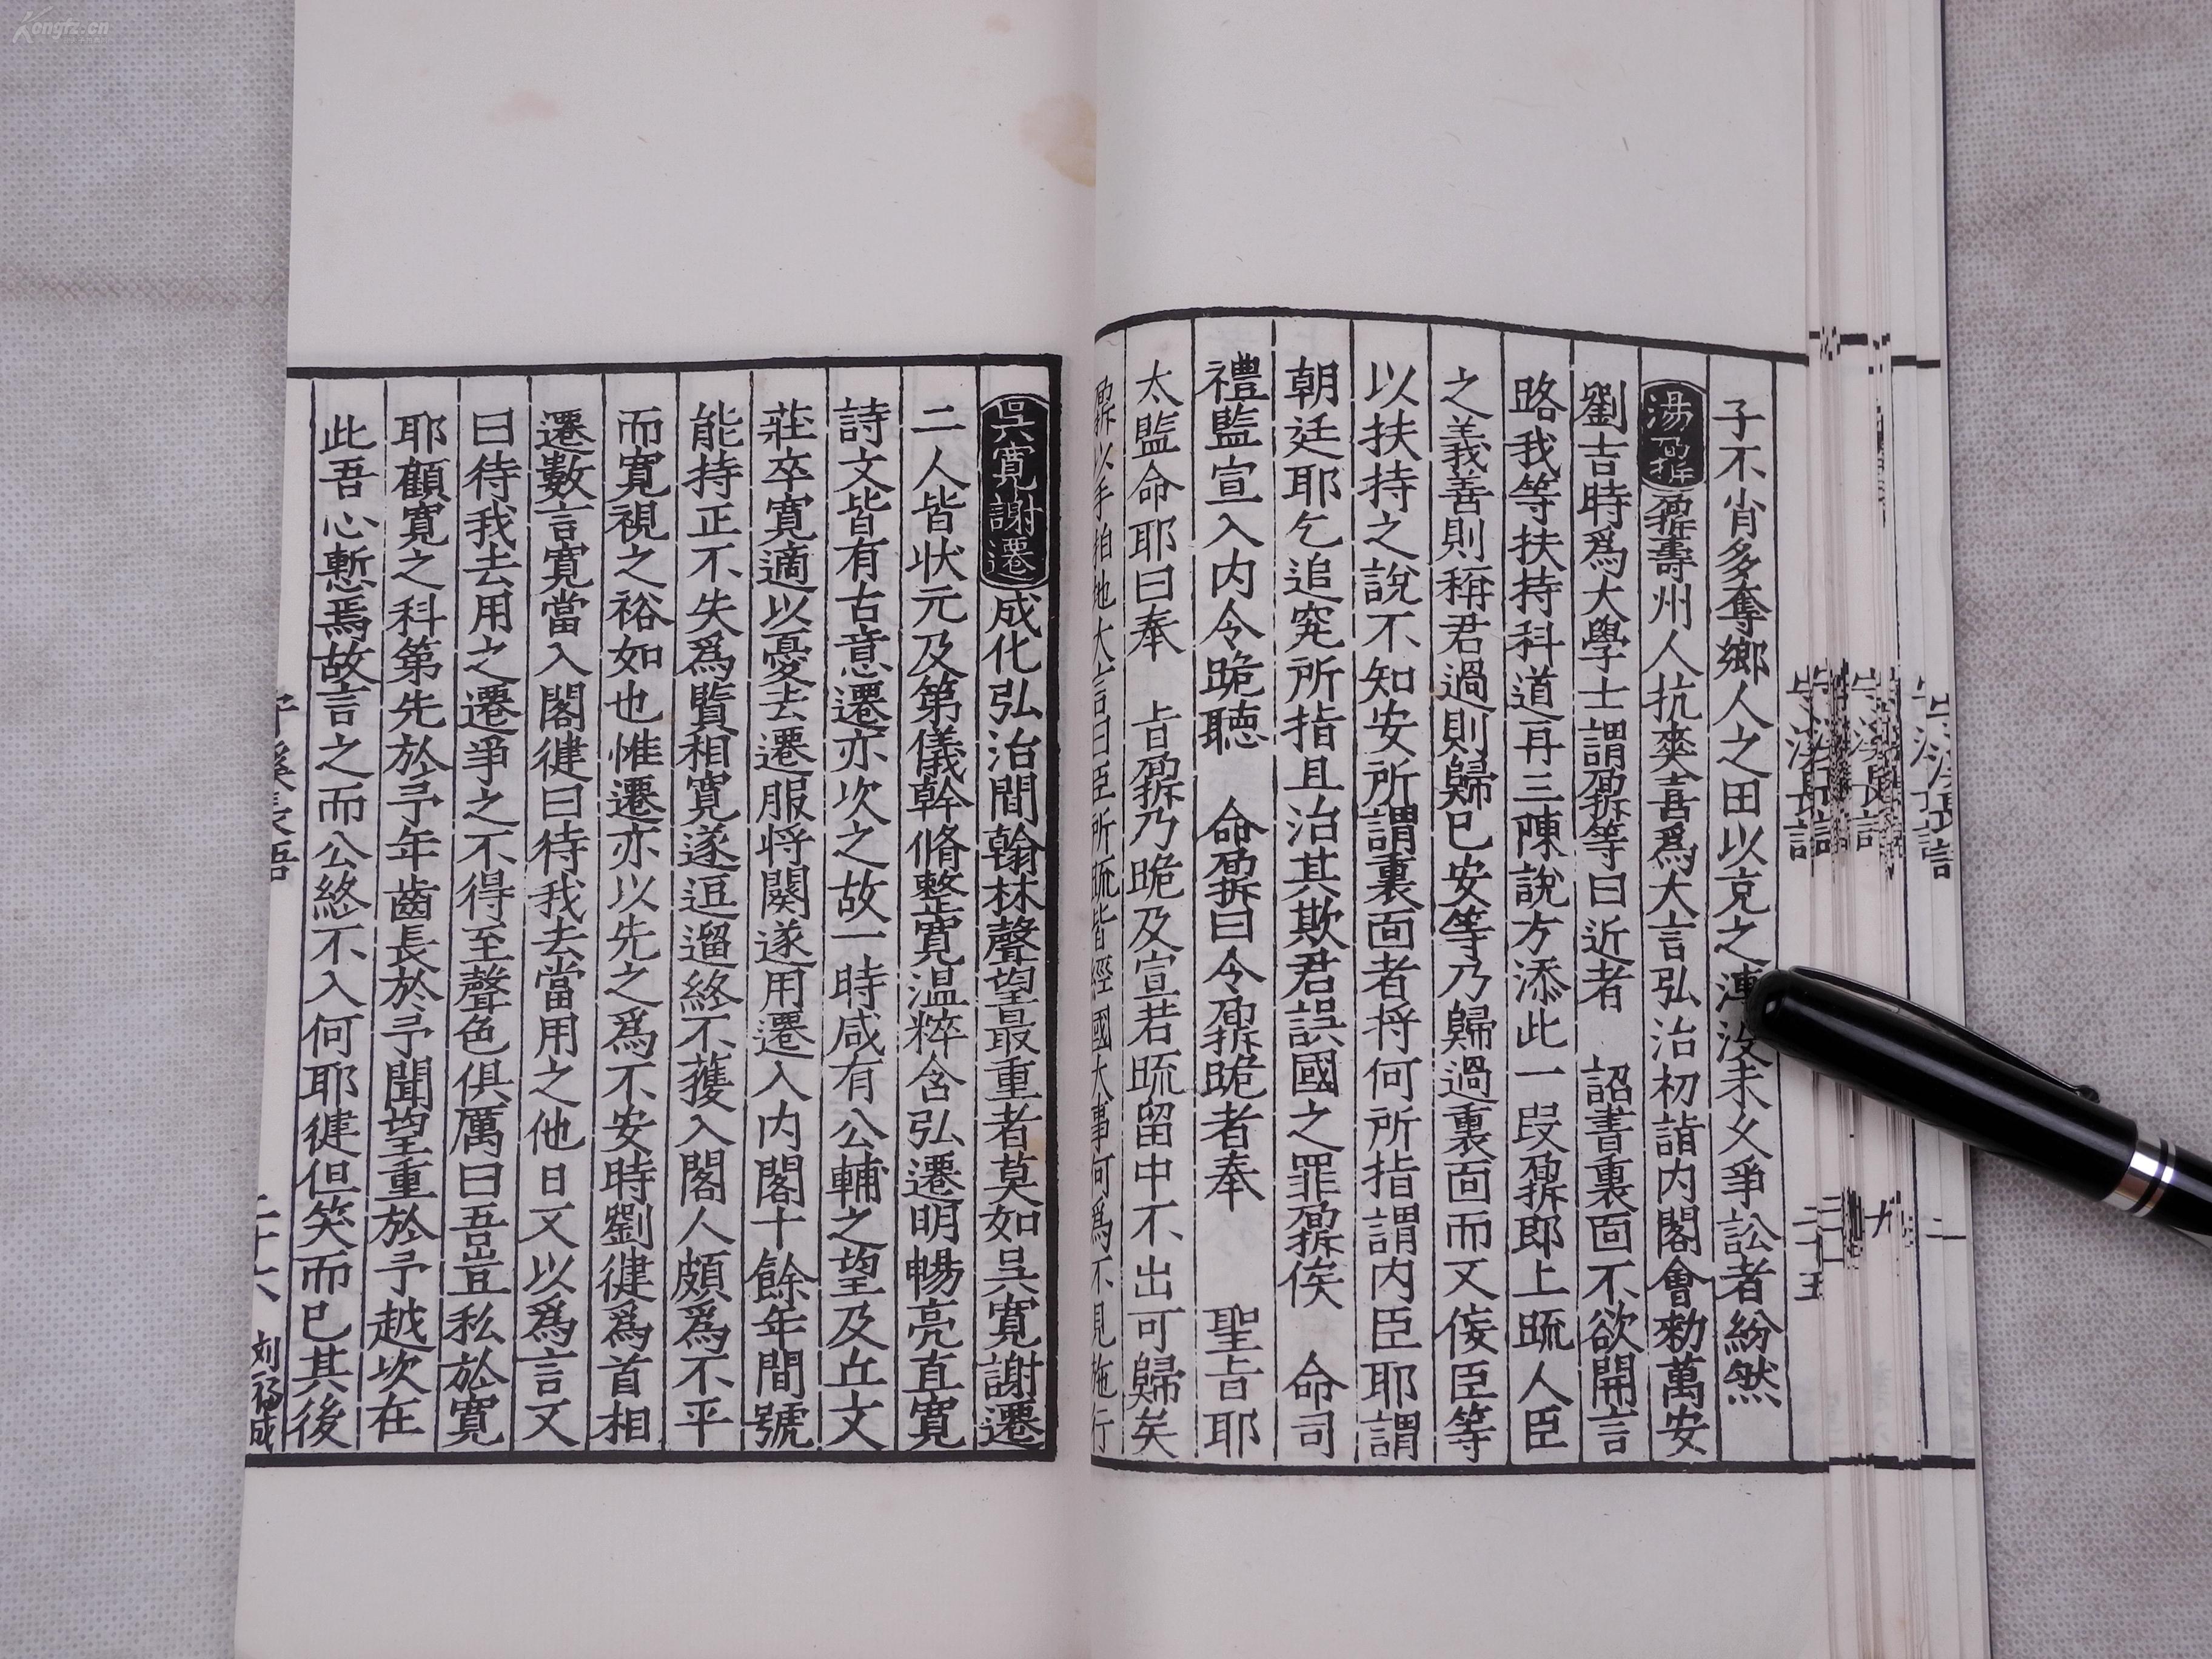 子不肖多奪鄉人之田以克之遄沒未乆爭訟者紛然
湯鼐 鼐壽州人抗爽喜爲大言弘治初詣内閣會勑萬安
劉吉時爲大學士謂鼐等曰近者 詔書裏面不欲開言
路我等扶持科道再三陳說方添此一叚鼐即上疏人臣
之義善則稱君過則歸已安等乃歸過裏面而又佞臣等
以扶持之說不知安所謂裏面者将何所指謂内臣耶謂
朝廷耶乞追究所指且治其欺君誤國之罪鼐俟 命司
禮監宣入内令跪聽 命鼐曰令鼐跪者奉 聖旨耶
太監命耶曰奉 旨鼐乃跪及宣若疏留中不出可歸矣
鼐以手拍地大言曰臣所疏皆經國大事何爲不見施行
吳寬謝遷 成化弘治間翰林聲望最重者莫如吳寬謝遷
二人皆状元及第儀幹脩整寬温粹含弘遷明暢亮直寬
詩文皆有古意遷亦次之故一時咸有公輔之望及丘文
莊卒寬適以憂去遷服将闋遂用遷入内閣十餘年間號
能持正不失爲賢相寬遂逗遛終不獲入閣人頗爲不平
而寬視之裕如也惟遷亦以先之爲不安時劉健爲首相
遷數言寬當入閣健曰待我去當用之他日又以爲言又
曰待我去用之遷爭之不得至聲色俱厲曰吾豈私於寬
耶顧寬之科第先於予年齒長於予聞望重於予越次在
此吾心慙焉故言之而公終不入何耶健但笑而已其後
二十六
刘福成